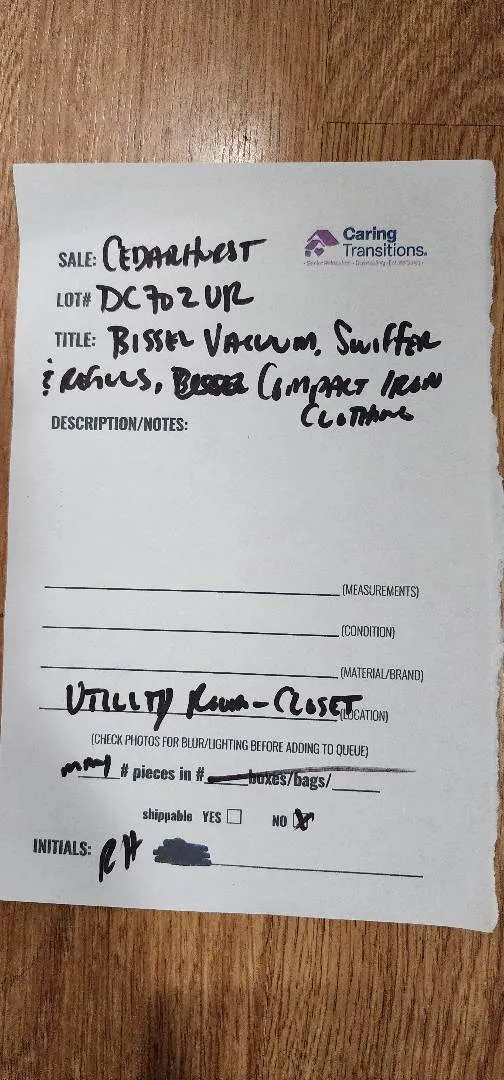 Caring
Transitions.
SALE: CEDARHURST
LOT# DC702UR
TITLE: BISSEL VACUUM, SWIFFER
& REFILLS, COMPACT IRON
CLOTHING
DESCRIPTION/NOTES:
(MEASUREMENTS)
(CONDITION)
(MATERIAL/BRAND)
UTILITY ROOM-CLOSET (LOCATION)
(CHECK PHOTOS FOR BLUR/LIGHTING BEFORE ADDING TO QUEUE)
many # pieces in # boxes/bags/
shippable YES NO
INITIALS: RH